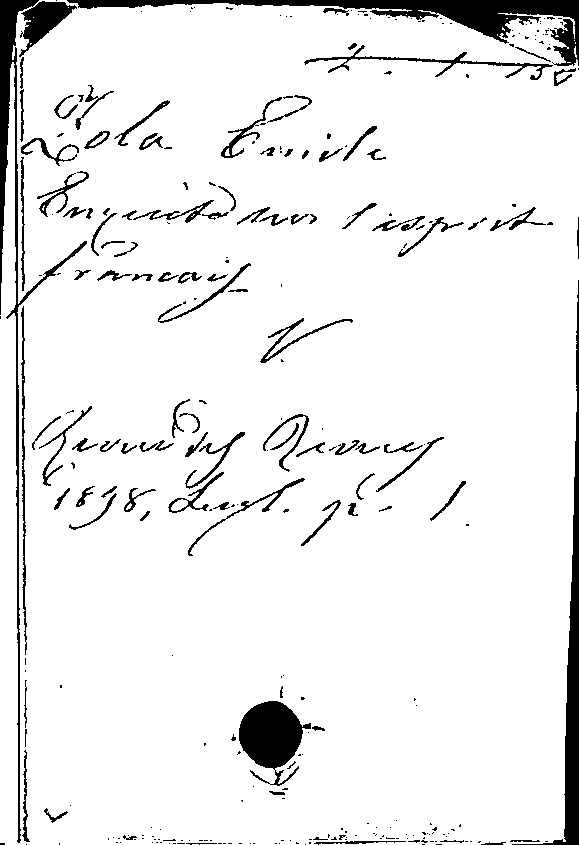 2. 1. 138
Zola Emile
Enquête sur l'esprit
français
V.
Revue des Revues
1898, p. 1.